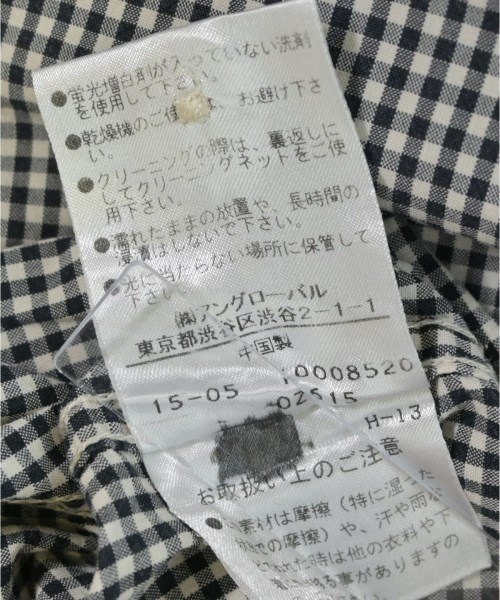 ●蛍光増白剤が入っていない洗剤
を使用して下さい。
●乾燥機のご使 、お避け下さ
い。
●クリーニングの際は、裏返しに
してクリーニングネットをご使
用下さい。
●濡れたままの放置や、長時間の
浸漬はしないで下さい。
●光に当たらない場所に保管して
下さい
㈱アングローバル
東京都渋谷区渋谷2-1-1
中国製
15-05 10008520
02615
H-13
お取扱い上のご注意
●素材は摩擦(特に湿った
での摩擦)や、汗や雨
れた時は他の衣料や下
る事がありますの